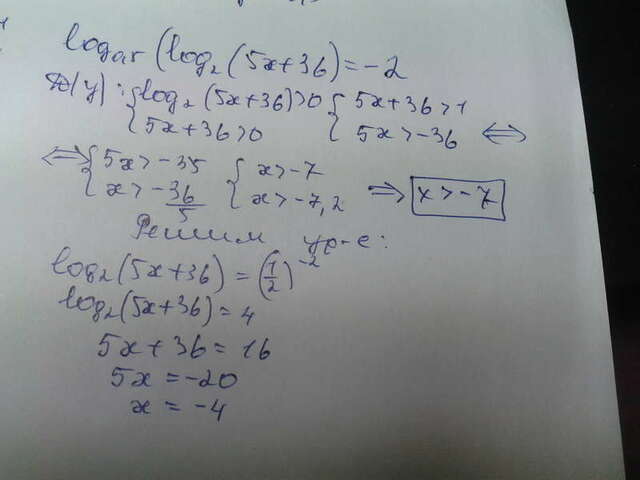 log₀,₅ (log₂ (5x+36) = -2
D(y): { log₂ (5x+36) > 0 { 5x+36 > 1
{ 5x+36 > 0 { 5x > -36 ⇔
⇔ { 5x > -35 { x > -7
{ x > -36/5 { x > -7,2 ⇒ x > -7
Решим ур-е:
log₂ (5x+36) = (1/2)⁻²
log₂ (5x+36) = 4
5x + 36 = 16
5x = -20
x = -4